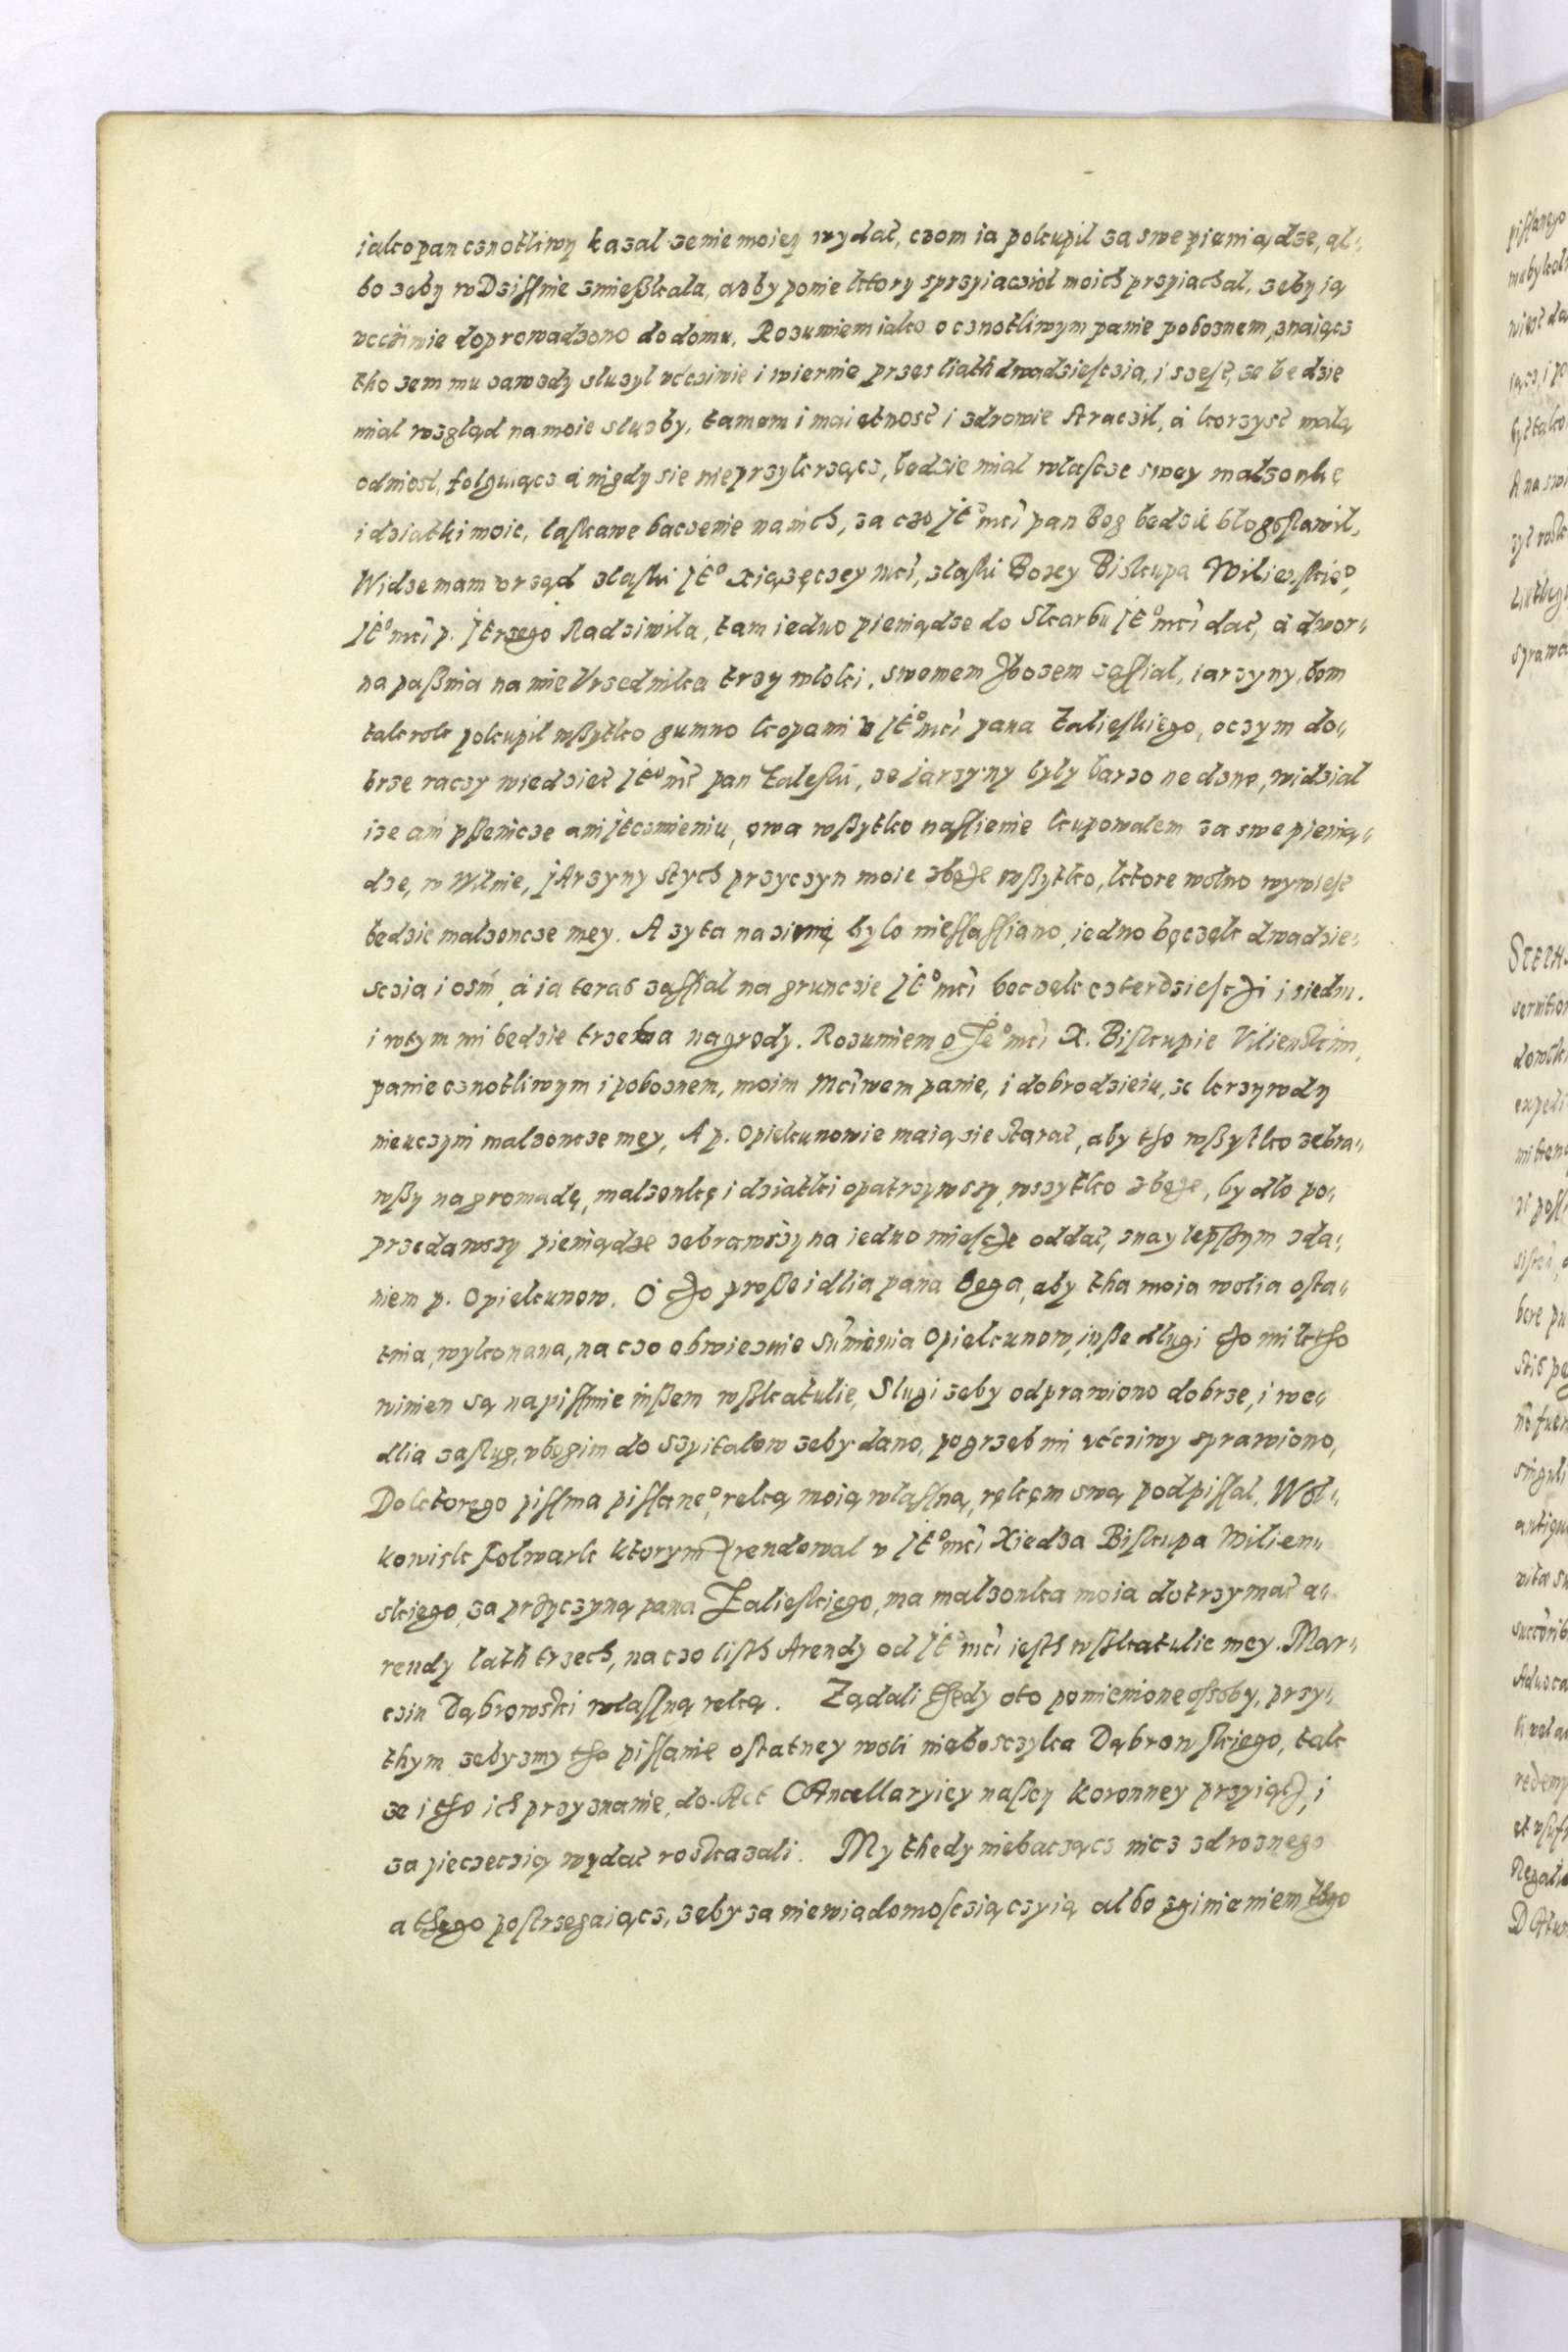 iako pan cznotliwy kazał zenie moiey wydać, czom ia pokupił za swe pieniądze, al-
bo zeby w Dziſſnie zmießkała, azby po nie ktory z przyiaczioł moich przyiachał, zeby ią
vcciwie doprowadzono do domu. Rozumiem iako o cznotliwym panie poboznem, znaiącz
tho zem mu zawzdy służył vccziwie i wiernie przes liath dwadzieſczia, i szeſć, ze będzie
miał wzgląd na moie służby, tamem i maiętność i zdrowie stracził, á korzysć małą
odniosł, folguiącz á nigdy sie nie przykrząc, będzie miał właſcze swey małzonkę
i dziatki moie, łaſkawe baczenie na nich, za czo Je° mći pan Bog będzie błogoſławił.
Widze mam vrząd z łaſki Je° xiązęczey mći, z łaſki Bozey Biſkupa Wilienſkie°,
Je° mći p. Jerzego Radziwiła, tam iedno pieniądze do Skarbu Je° mći dać, á dwor-
na paßnia na mie Vrzednika trzy włoki, swemem zbozem zaſſiał, iarzyny, bom
tak rok pokupił wßytko gumno kopami v Je° mći pana Zalieſkiego, o czym do-
brze raczy wiedzieć Je° mć pan Zaleſki, ze jarzyny były barzo nedzne, widział
ize ani pßenicze ani jęczmieniu, owa wßytko naſſienie kupowałem za swe pienią-
dze, w Wilnie, jarzyny z tych przyczyn moie zboże wßytko, ktore wolno wywieſć
będzie małzoncze mey. A zyta na zimę było nieſſaſſiano, iedno bęczęk dwadzie-
sczia i osm, á ia teras zaſſiał na gruncie Je° mći beczęk czterdzieſczi i siedm.
i w tym mi będzie trzeba nagrody. Rozumiem o Je° mći X. Biſkupie Vilienſkim,
panie cznotliwym i poboznem, moim Mćiwem panie, i dobrodzieiu, ze krzywdy
nieuczyni małzoncze mey, A p. Opiekunowie maią sie starać, aby tho wßytko zebra-
wßy na gromadę, małzonkę i dziatki opatrzywszy, wszytko zboże, bydło po-
przedawszy pieniądze zebrawszy na iedno mieſcze oddać, z naylepſzym zda-
niem p. Opiekunow. O czo proßę i dlia pana Boga, aby tha moia wolia oſta-
tnia, wykonana, na czo obwieznie Sumienia Opiekunow, inße długi czo mi kto
winien są na piſſmie inßem w ßkatulie, Sługi zeby odprawiono dobrze, i we-
dlia zaſług, vbogim do szpitalow zeby dano, pogrzeb mi vccziwy sprawiono,
Do ktorego piſſma piſſane°, ręką moią właſſną, rękąm swą podpiſſał. Woł-
kowisk Folwark ktorym Arendował v Je° mći Xiedza Biſkupa Wilien-
skiego, za przyczyną pana Zalieſkiego, ma małzonka moia dotrzymać a-
rendy lath trzech, na czo liſth Arendy od Je° mći ieſth w ßkatulie mey. Mar-
czin Dąbrowski właſſną ręką. Ządali thedy oto pomienione oſſoby, przy-
thym zebyzmy tho piſſanie oſtatney woli nieboszczyka Dąbrowſkiego, tak
ze i tho ich przyznanie, do Act Cancellaryiey naſzey koronney przyiąć, i
za pieczęczią wydać roſkazali. My thedy niebacząc nicz zdroznego
a thego poſtrzegaiącz, zeby za niewiadomoſczią czyią albo zginieniem thego